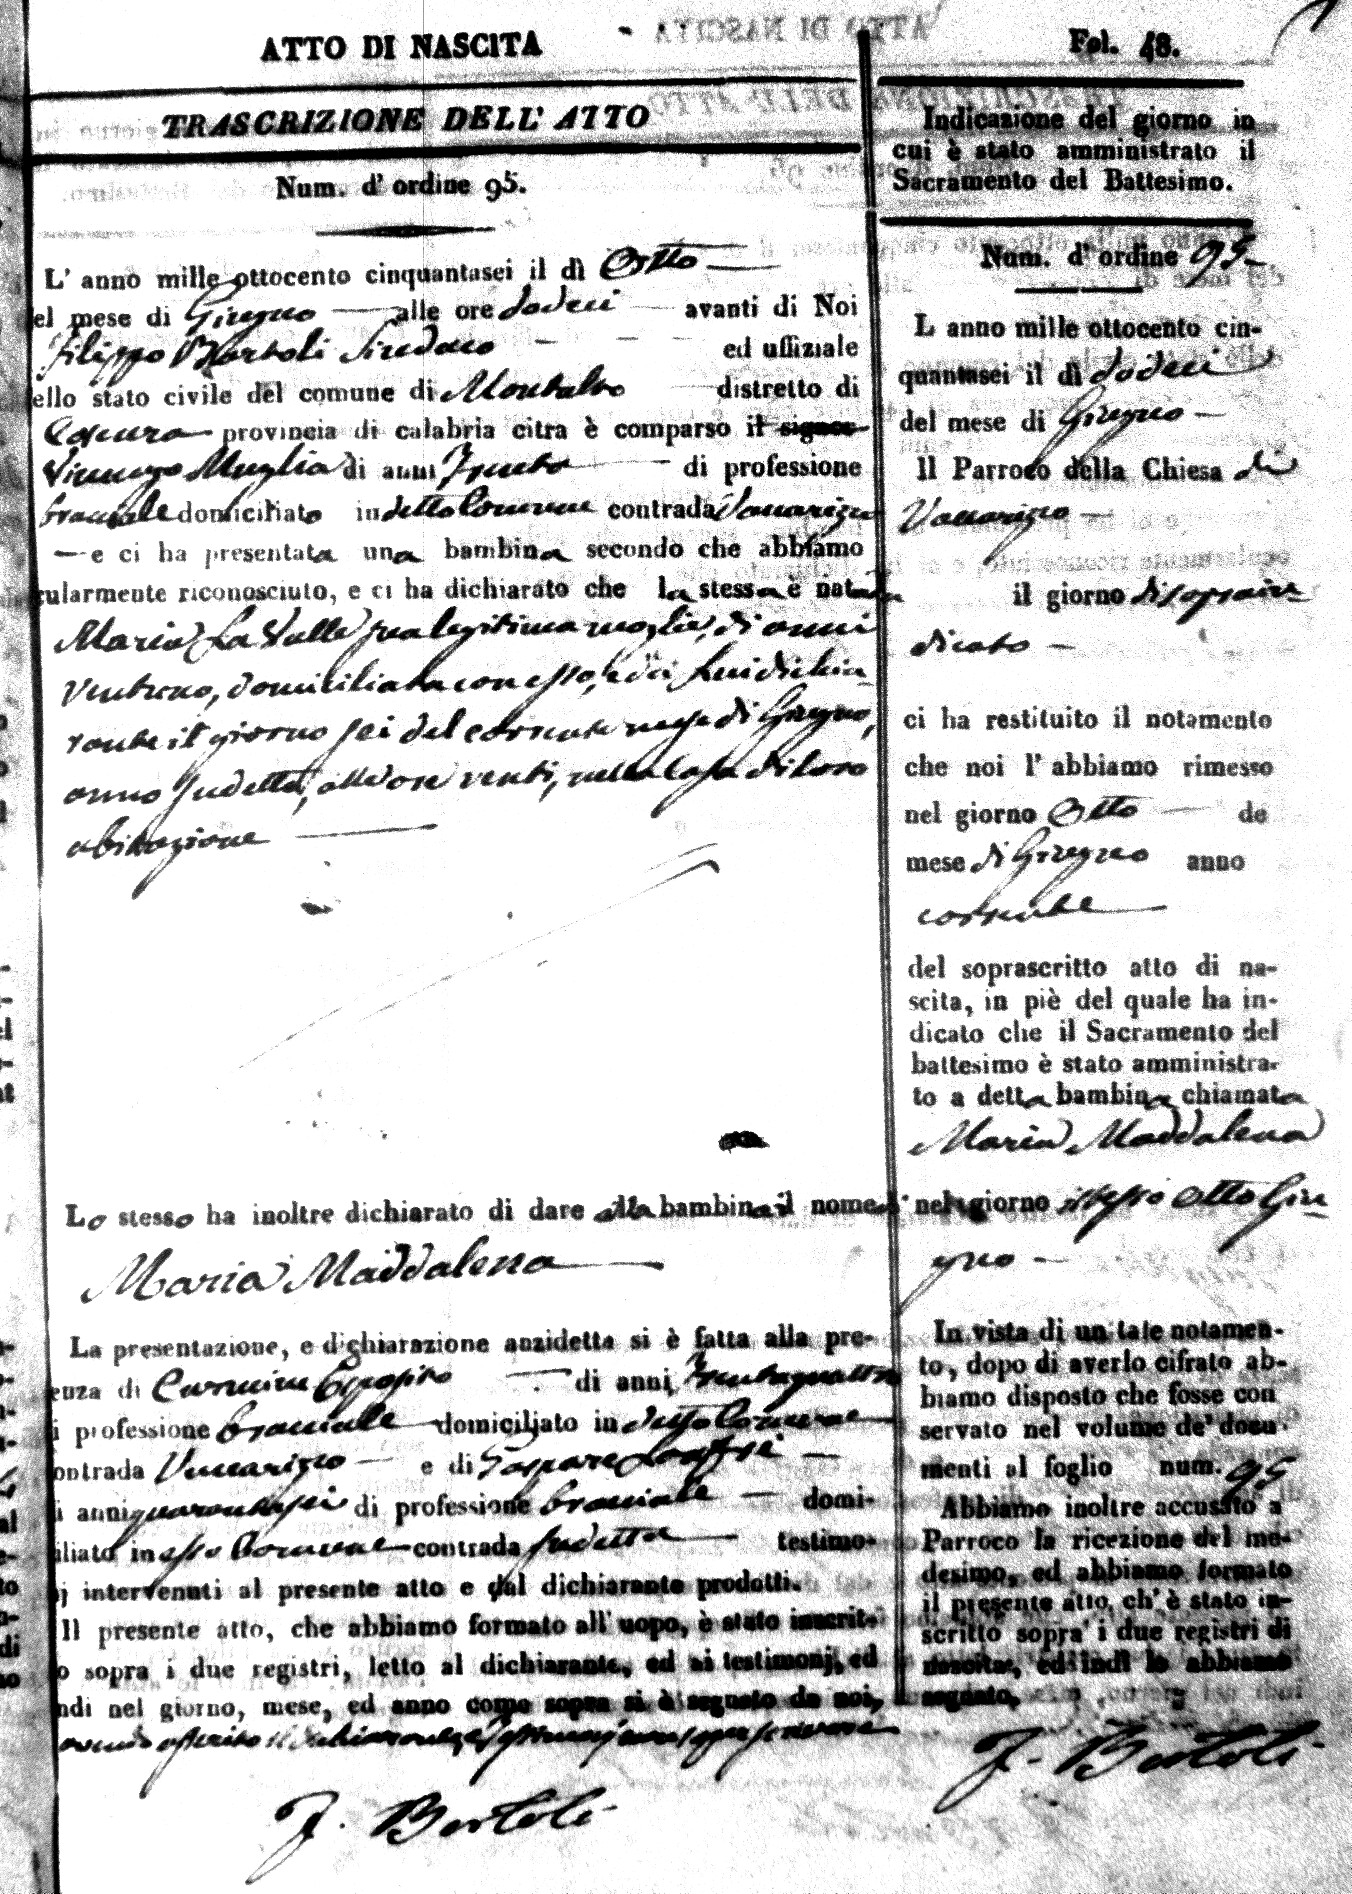 ATTO DI NASCITA
TRASCRIZIONE DELL' ATTO
Num. d' ordine 95.
L' anno mille ottocento cinquantasei il dì Otto
el mese di Giugno alle ore dodeci avanti di Noi
Filippo Bartoli Sindaco ed uffiziale
ello stato civile del comune di Montalto distretto di
Cosenza provincia di calabria citra è comparso il signor
Vincenzo Muglia di anni Trenta di professione
bracciale domiciliato in detto Comune contrada Vaccarizzo
e ci ha presentata una bambina secondo che abbiamo
cularmente riconosciuto, e ci ha dichiarato che la stessa è nata da
Maria La Valle sua legitima moglie, di anni
ventuno, domiciliata con esso, e da lui dichia
rante il giorno sei del corrente mese di Giugno,
anno sudetto, alle ore venti, nella casa di loro
abitazione
Lo stesso ha inoltre dichiarato di dare alla bambina il nome di
Maria Maddalena
La presentazione, e dichiarazione anzidetta si è fatta alla pre-
enza di Carmine Esposito di anni Trentaquattro
i professione bracciale domiciliato in detto Comune
ontrada Vaccarizzo e di Gaspare
i anni quarantasei di professione bracciale domi-
iliato in esso Comune contrada sudetta testimo-
nj intervenuti al presente atto e dal dichiarante prodotti.
Il presente atto, che abbiamo formato all' uopo, è stato inscrit-
o sopra i due registri, letto al dichiarante, ed ai testimonj, ed
ndi nel giorno, mese, ed anno come sopra si è segnato da noi,
avendo asserito il dichiarante, e testimonj non saper scrivere
F. Bartoli
Fol. 48.
Indicazione del giorno in
cui è stato amministrato il
Sacramento del Battesimo.
Num. d' ordine 95
L anno mille ottocento cin-
quantasei il dì dodeci
del mese di Giugno
Il Parroco della Chiesa di
Vaccarizzo
il giorno disoprain
dicato
ci ha restituito il notamento
che noi l' abbiamo rimesso
nel giorno Otto de
mese di Giugno anno
corrente
del soprascritto atto di na-
scita, in piè del quale ha in-
dicato che il Sacramento del
battesimo è stato amministra-
to a detta bambina chiamata
Maria Maddalena
nel giorno istesso otto Giu
gno
In vista di un tale notamen-
to, dopo di averlo cifrato ab-
biamo disposto che fosse con
servato nel volume de' docu-
menti al foglio num. 95
Abbiamo inoltre accusato a
Parroco la ricezione del me-
desimo, ed abbiamo formato
il presente atto, ch' è stato in-
scritto sopra i due registri di
nascita, ed indi lo abbiamo
segnato.
F. Bartoli